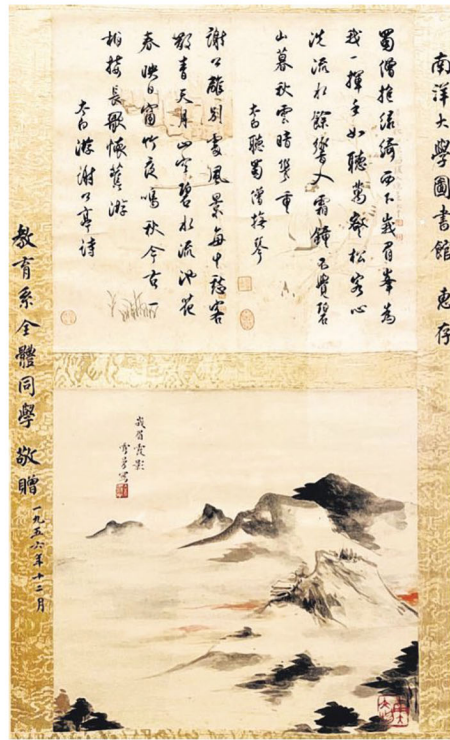 南洋大學圖書館 惠存
蜀僧抱綠綺西下峩眉峯為
我一揮手如聽萬壑松客心
洗流水餘響入霜鐘不覺碧
山暮秋雲暗幾重
太白聽蜀僧撫琴
謝公離別處風景每生愁客
散青天月山空碧水流池花
春映日窗竹夜鳴秋今古一
相接長歌懷舊游
太白游謝公亭詩
峩眉霞影
教育系全體同學 敬贈 一九五六年十二月